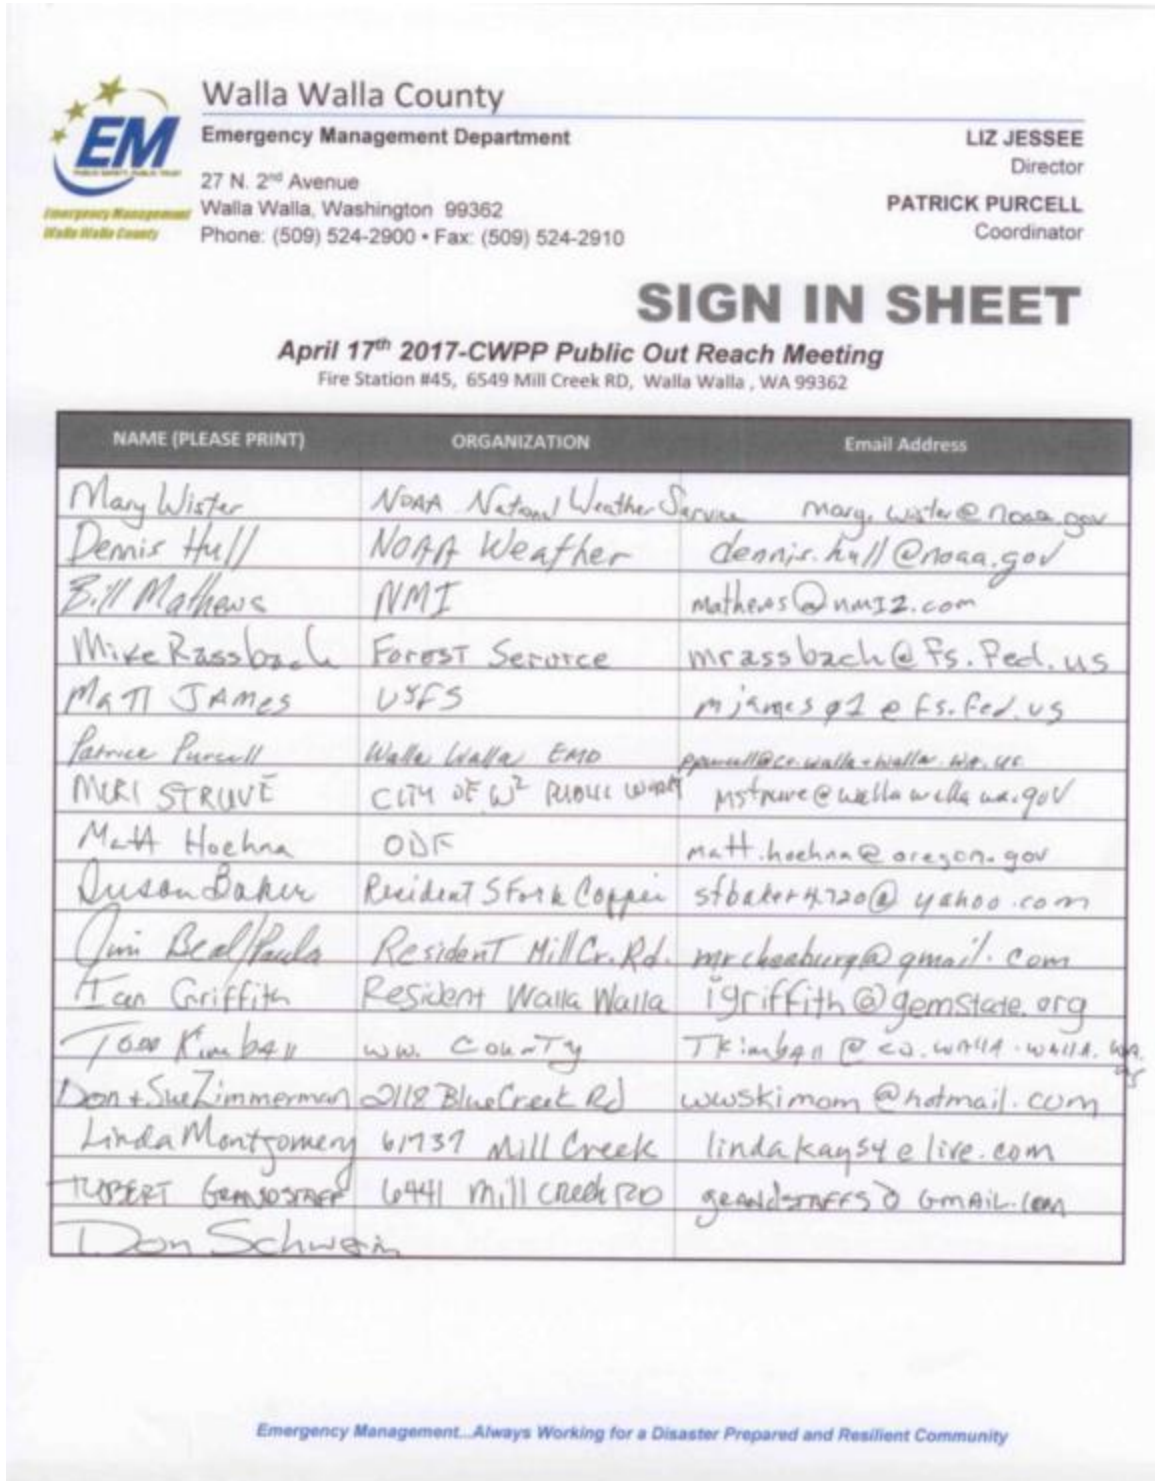 Walla Walla County
Emergency Management Department
27 N. 2nd Avenue
Walla Walla, Washington 99362
Phone: (509) 524-2900 • Fax: (509) 524-2910
EM
Emergency Management
Walla Walla County
LIZ JESSEE
Director
PATRICK PURCELL
Coordinator
SIGN IN SHEET
April 17th 2017-CWPP Public Out Reach Meeting
Fire Station #45, 6549 Mill Creek RD, Walla Walla , WA 99362
NAME (PLEASE PRINT) ORGANIZATION Email Address
Mary Wister NOAA National Weather Service mary.wister@noaa.gov
Dennis Hull NOAA Weather dennis.hull@noaa.gov
Bill Mathews NMI mathews@nmi2.com
Mike Rassbach Forest Service mrassbach@fs.fed.us
Matt James USFS mjames01@fs.fed.us
Patrick Purcell Walla Walla EMD ppurcell@co.walla-walla.wa.us
MERI STRUVE CITY OF W² PUBLIC WORKS mstruve@wallawallawa.gov
Matt Hoehna ODF matt.hoehna@oregon.gov
Susan Baker Resident S Fork Coppei sfbaker4720@yahoo.com
Jim Beal/Paula Resident Mill Cr. Rd. @gmail.com
Ian Griffith Resident Walla Walla igriffith@gemstate.org
Todd Kimball WW. County TKimball@co.walla-walla.wa.us
Don + Sue Zimmerman 2118 Blue Creek Rd wwskimom@hotmail.com
Linda Montgomery 6737 Mill Creek lindakay54@live.com
GRANDSTAFF 6441 Mill Creek RD GRANDSTAFFS@GMAIL.COM
Don Schwein
Emergency Management...Always Working for a Disaster Prepared and Resilient Community